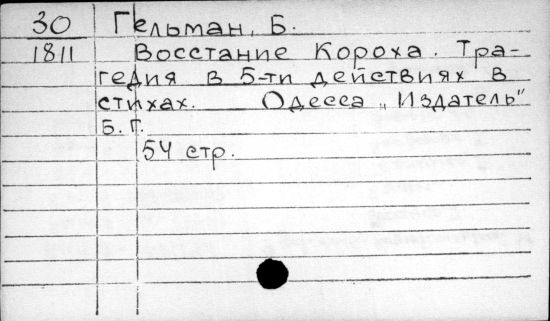 30 Гельман, Б.
1811 Восстание Короха. Тра-
гедия в 5-ти действиях в
стихах. Одесса „Издатель"
Б. Г.
54 стр.